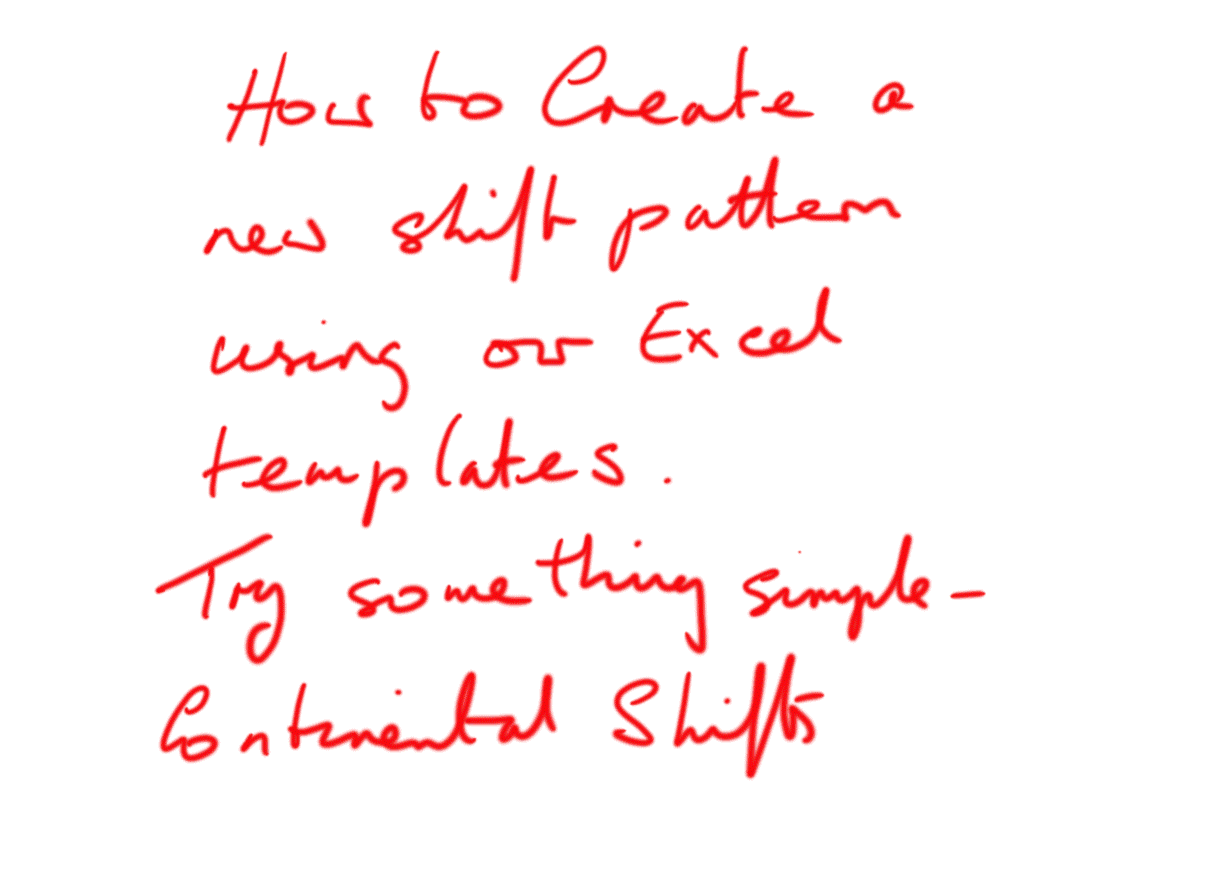 How to Create a
new shift pattern
using our Excel
templates.
Try something simple -
Continental Shifts